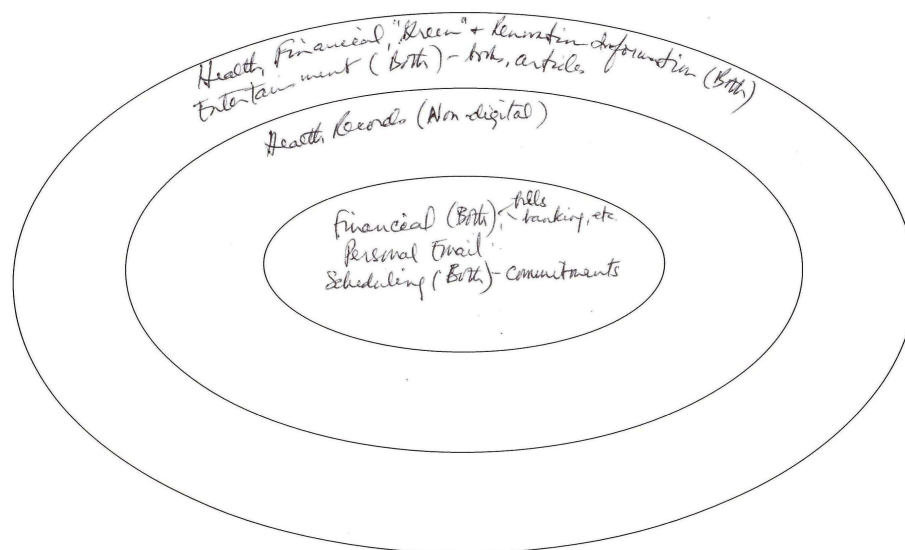 Health, Financial, "Green" + Renovation Information (Both)
Entertainment (Both) - books, articles
Health Records (Non-digital)
Financial (Both) bills
banking, etc
Personal Email
Scheduling (Both) - commitments